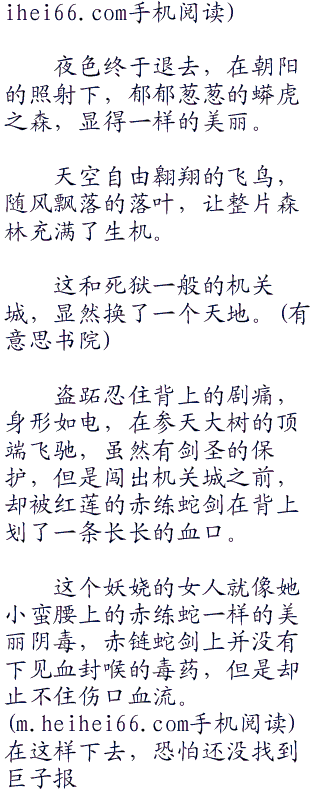 ihei66.com手机阅读)
夜色终于退去，在朝阳
的照射下，郁郁葱葱的蟒虎
之森，显得一样的美丽。
天空自由翱翔的飞鸟，
随风飘落的落叶，让整片森
林充满了生机。
这和死狱一般的机关
城，显然换了一个天地。(有
意思书院)
盗跖忍住背上的剧痛，
身形如电，在参天大树的顶
端飞驰，虽然有剑圣的保
护，但是闯出机关城之前，
却被红莲的赤练蛇剑在背上
划了一条长长的血口。
这个妖娆的女人就像她
小蛮腰上的赤练蛇一样的美
丽阴毒，赤链蛇剑上并没有
下见血封喉的毒药，但是却
止不住伤口血流。
(m.heihei66.com手机阅读)
在这样下去，恐怕还没找到
巨子报